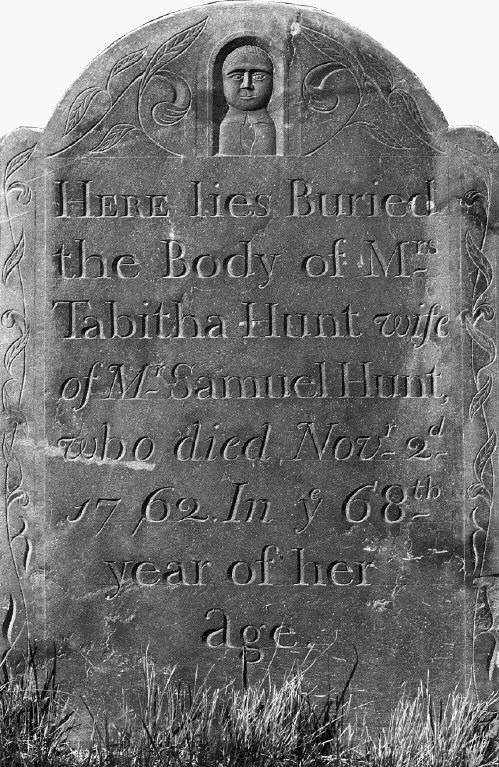 HERE lies Buried
the Body of Mrs
Tabitha Hunt wife
of Mr Samuel Hunt,
who died Novr 2d
1762. In ye 68th
year of her
age.